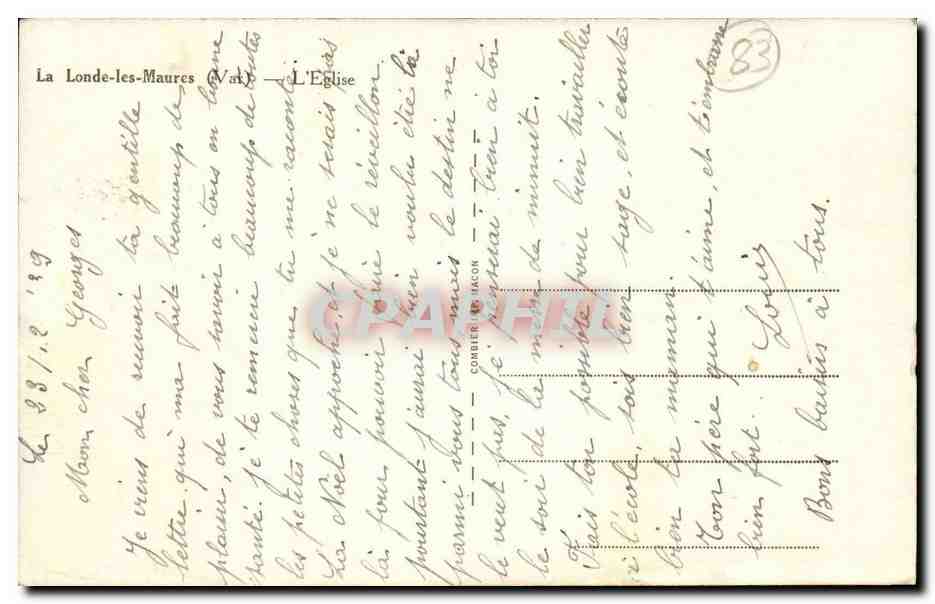 La Londe-les-Maures (Var) — L'Eglise
83
COMBIER IMP. MACON
CPAPHIL
Le 23/12 '39
Mon cher Georges
Je viens de recevoir ta gentille
lettre qui m'a fait beaucoup de
plaisir, de vous savoir à tous en bonne
santé. je te remercie beaucoup de toutes
les petites choses que tu me raconte.
La Noël approche, et je ne serais pas
là pour pouvoir faire le réveillon.
pourtant j'aurai bien voulu été là
parmi vous tous mais le destin ne
le veut pas. Je penserai bien à toi
le soir de la messe de minuit.
Fais ton possible pour bien travailler
à l'école, sois bien sage, et écoute
bien ta maman
Ton père qui t'aime, et t'embrasse
bien fort. Louis
Bons baisers à tous.